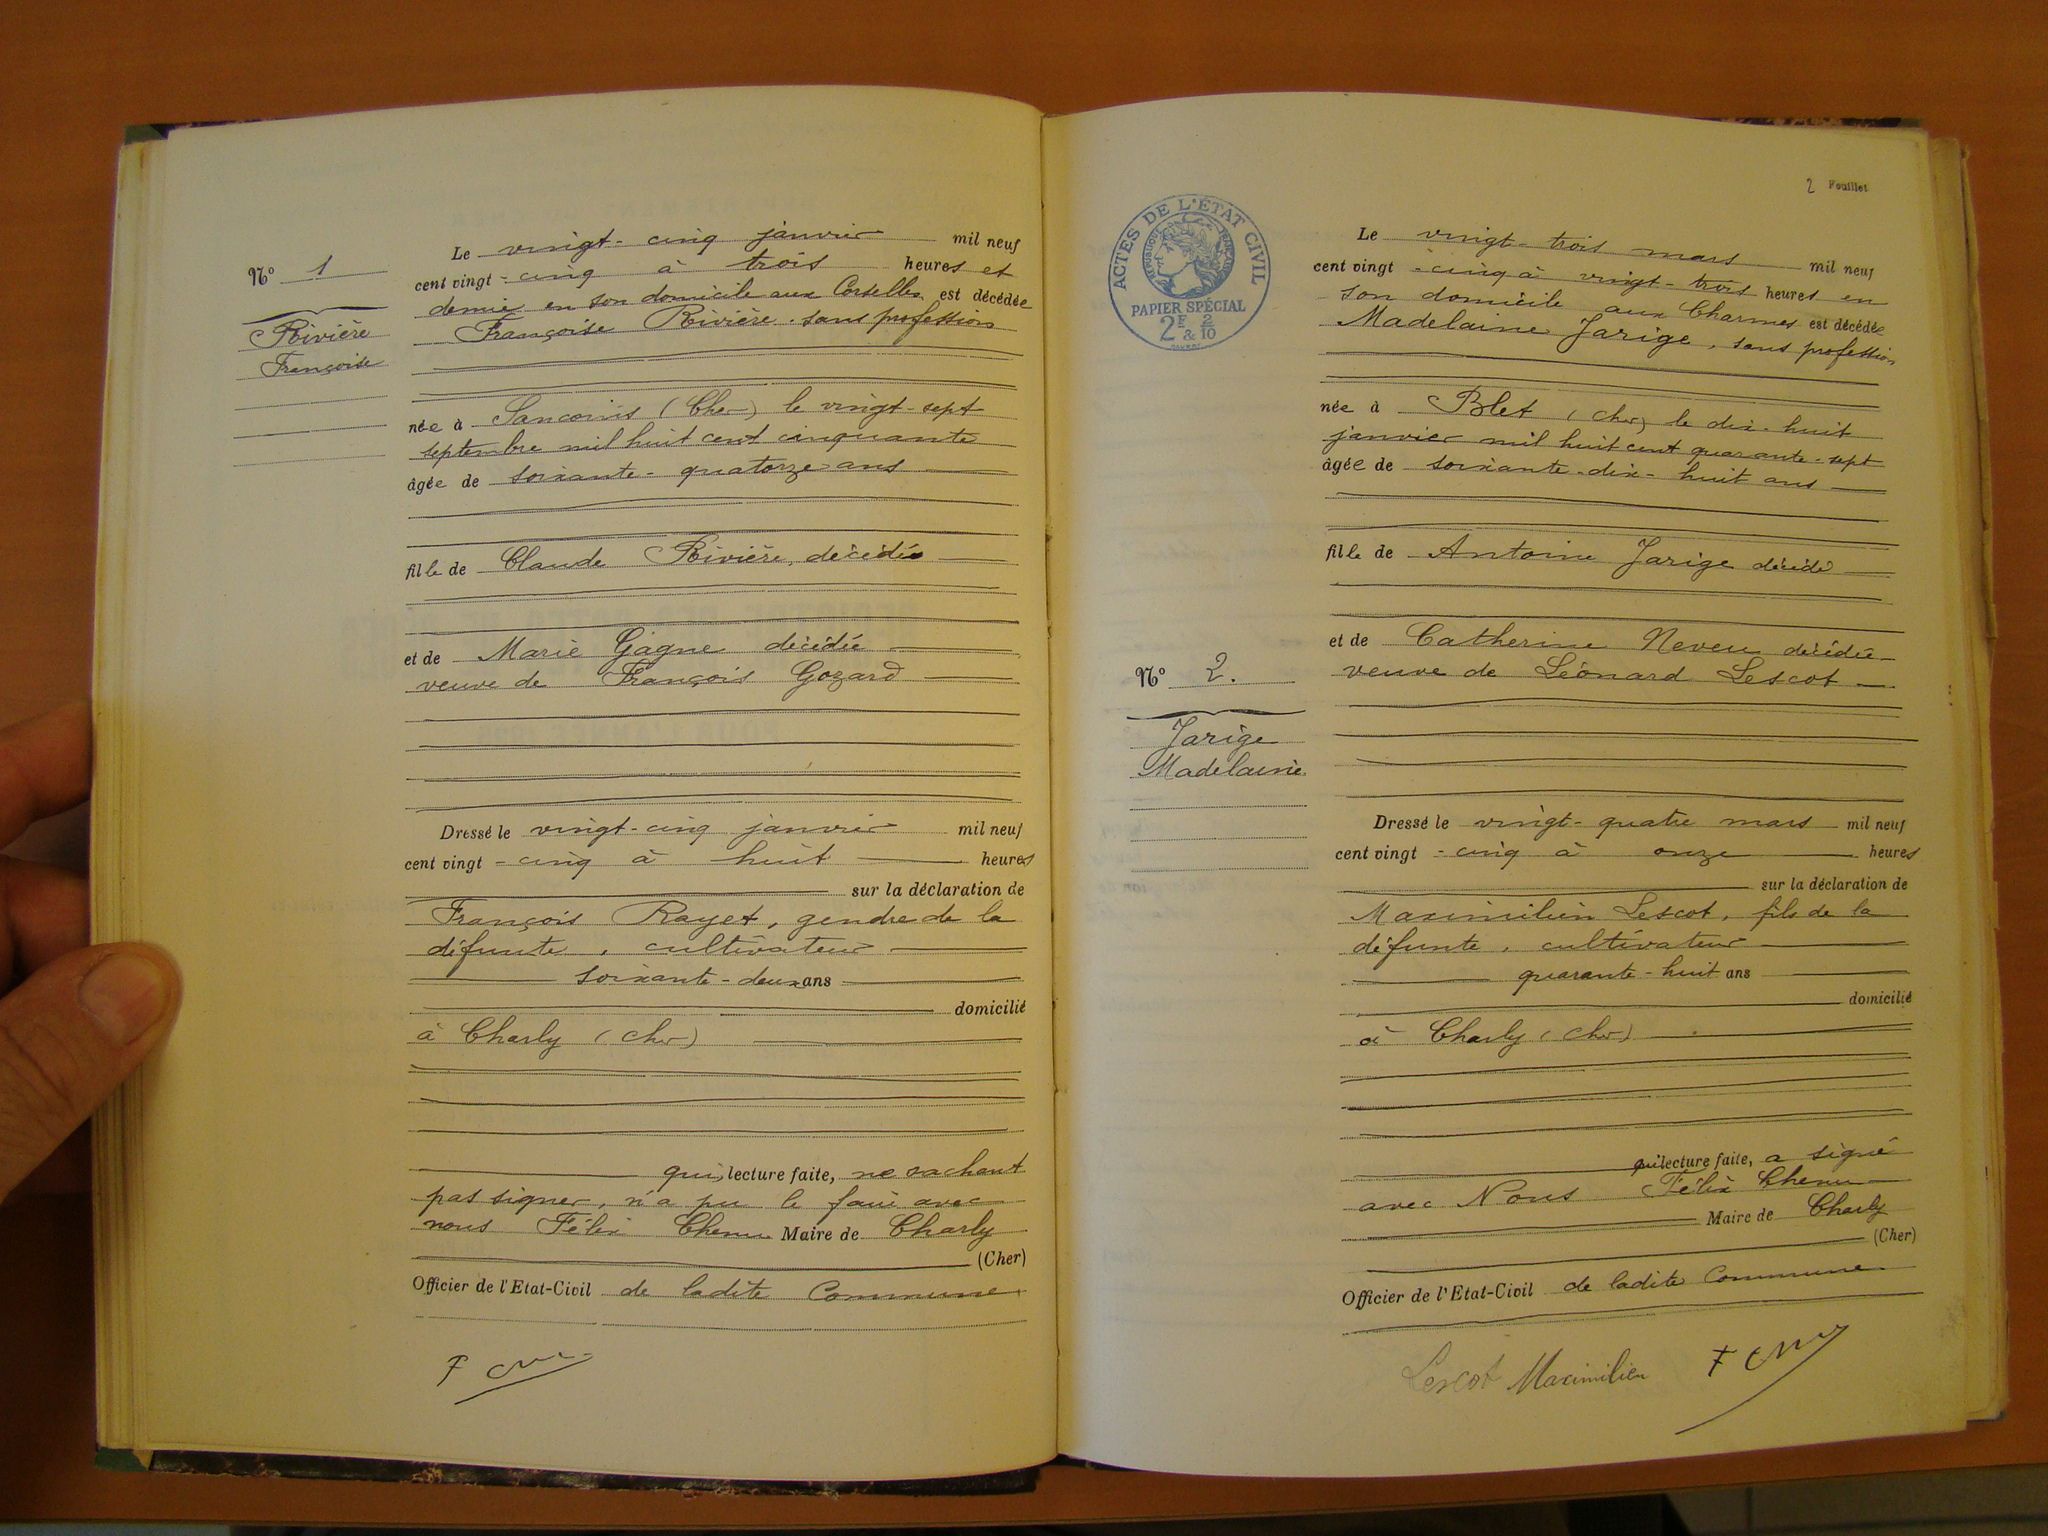 Nº 1
Rivière
Françoise
Le vingt-cinq janvier mil neuf
cent vingt-cinq à trois heures et
demie en son domicile aux Corselles est décédée
Françoise Rivière, sans profession
née à Sancoins (Cher) le vingt-sept
septembre mil huit cent cinquante
âgée de soixante-quatorze ans
fille de Claude Rivière, décédé
et de Marie Gagne décédée
veuve de François Gozard
Dressé le vingt-cinq janvier mil neuf
cent vingt-cinq à huit heures
sur la déclaration de
François Rayet, gendre de la
défunte, cultivateur
soixante-deux ans
domicilié
à Charly (Cher)
qui, lecture faite, ne sachant
pas signer, n'a pu le faire avec
nous Félix Chenu Maire de Charly
(Cher)
Officier de l'Etat-Civil de ladite Commune.
2 Feuillet
ACTES DE L'ÉTAT CIVIL
RÉPUBLIQUE FRANÇAISE
PAPIER SPÉCIAL
2F & 2/10
Nº 2.
Jarige
Madelaine
Le vingt-trois mars mil neuf
cent vingt-cinq à vingt-trois heures en
son domicile aux Charmes est décédée
Madelaine Jarige, sans profession
née à Blet (Cher) le dix-huit
janvier mil huit cent quarante-sept
âgée de soixante-dix-huit ans
fille de Antoine Jarige décédé
et de Catherine Neveu décédée
veuve de Léonard Lescot
Dressé le vingt-quatre mars mil neuf
cent vingt-cinq à onze heures
sur la déclaration de
Maximilien Lescot, fils de la
défunte, cultivateur
quarante-huit ans
domicilié
à Charly (Cher)
qui lecture faite, a signé
avec Nous Félix Chenu
Maire de Charly
(Cher)
Officier de l'Etat-Civil de ladite Commune.
Lescot Maximilien